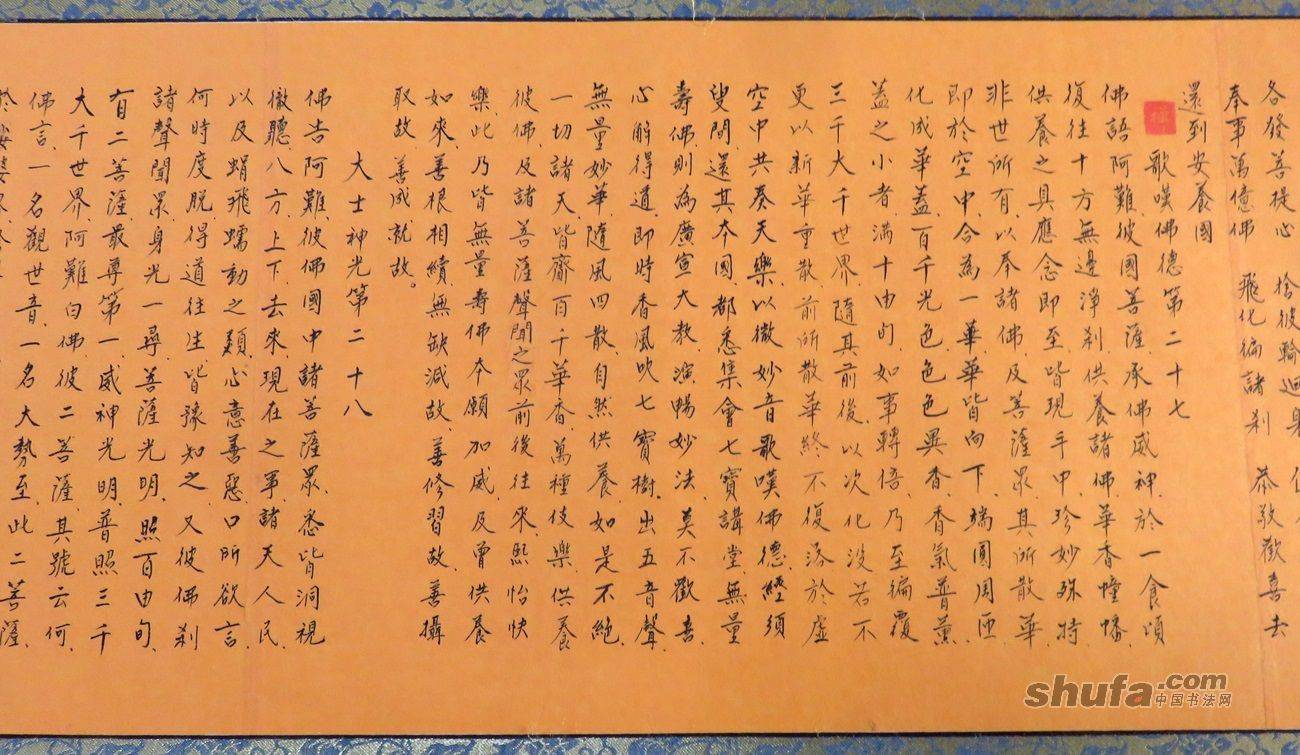 各發菩提心 捨彼輪迴身
奉事萬億佛 飛化徧諸刹 恭敬歡喜去
還到安養國
歌嘆佛德第二十七
佛語阿難、彼國菩薩、承佛威神、於一食頃
復往十方無邊淨刹、供養諸佛、華香幢幡、
供養之具、應念即至、皆現手中、珍妙殊特
非世所有、以奉諸佛、及菩薩眾、其所散華
即於空中、合為一華、華皆向下、端圓周匝
化成華蓋、百千光色、色色異香、香氣普薰
蓋之小者、滿十由旬、如事轉倍、乃至徧覆
三千大千世界、隨其前後、以次化沒、若不
更以新華重散、前所散華終不復落、於虛
空中共奏天樂、以微妙音歌嘆佛德、經須
臾間、還其本國、都悉集會七寶講堂、無量
壽佛、則為廣宣大教、演暢妙法、莫不歡喜
心解得道、即時香風吹七寶樹、出五音聲、
無量妙華、隨風四散、自然供養、如是不絕、
一切諸天、皆齎百千華香、萬種伎樂、供養
彼佛、及諸菩薩聲聞之眾、前後往來、熙怡快
樂、此乃皆無量壽佛本願加威、及曾供養
如來、善根相續、無缺減故、善修習故、善攝
取故、善成就故。
大士神光第二十八
佛告阿難、彼佛國中諸菩薩眾、悉皆洞視
徹聽八方、上下、去來、現在之事、諸天人民、
以及蜎飛蠕動之類、心意善惡、口所欲言、
何時度脫、得道往生、皆豫知之、又彼佛刹
諸聲聞眾、身光一尋、菩薩光明、照百由旬、
有二菩薩、最尊第一、威神光明、普照三千
大千世界、阿難白佛、彼二菩薩、其號云何、
佛言、一名觀世音、一名大勢至、此二菩薩、
shufa.com
中国书法网